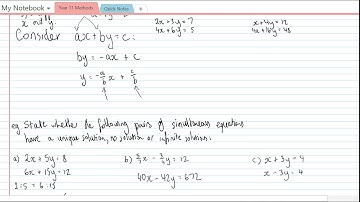 My Notebook
Year 11 Methods
Quick Notes
2x + 3y = 7
4x + 6y = 5
x + 4y = 12
4x + 16y = 48
Consider ax + by = c:
by = -ax + c
y = -a/b x + c/b
eg State whether the following pairs of simultaneous equations
have a unique solution, no solution or infinite solutions.
a) 2x + 5y = 8
6x + 15y = 12
b)
40x - 42y = 672
c) x + 3y = 4
x - 3y = 4
2:5 = 6:15